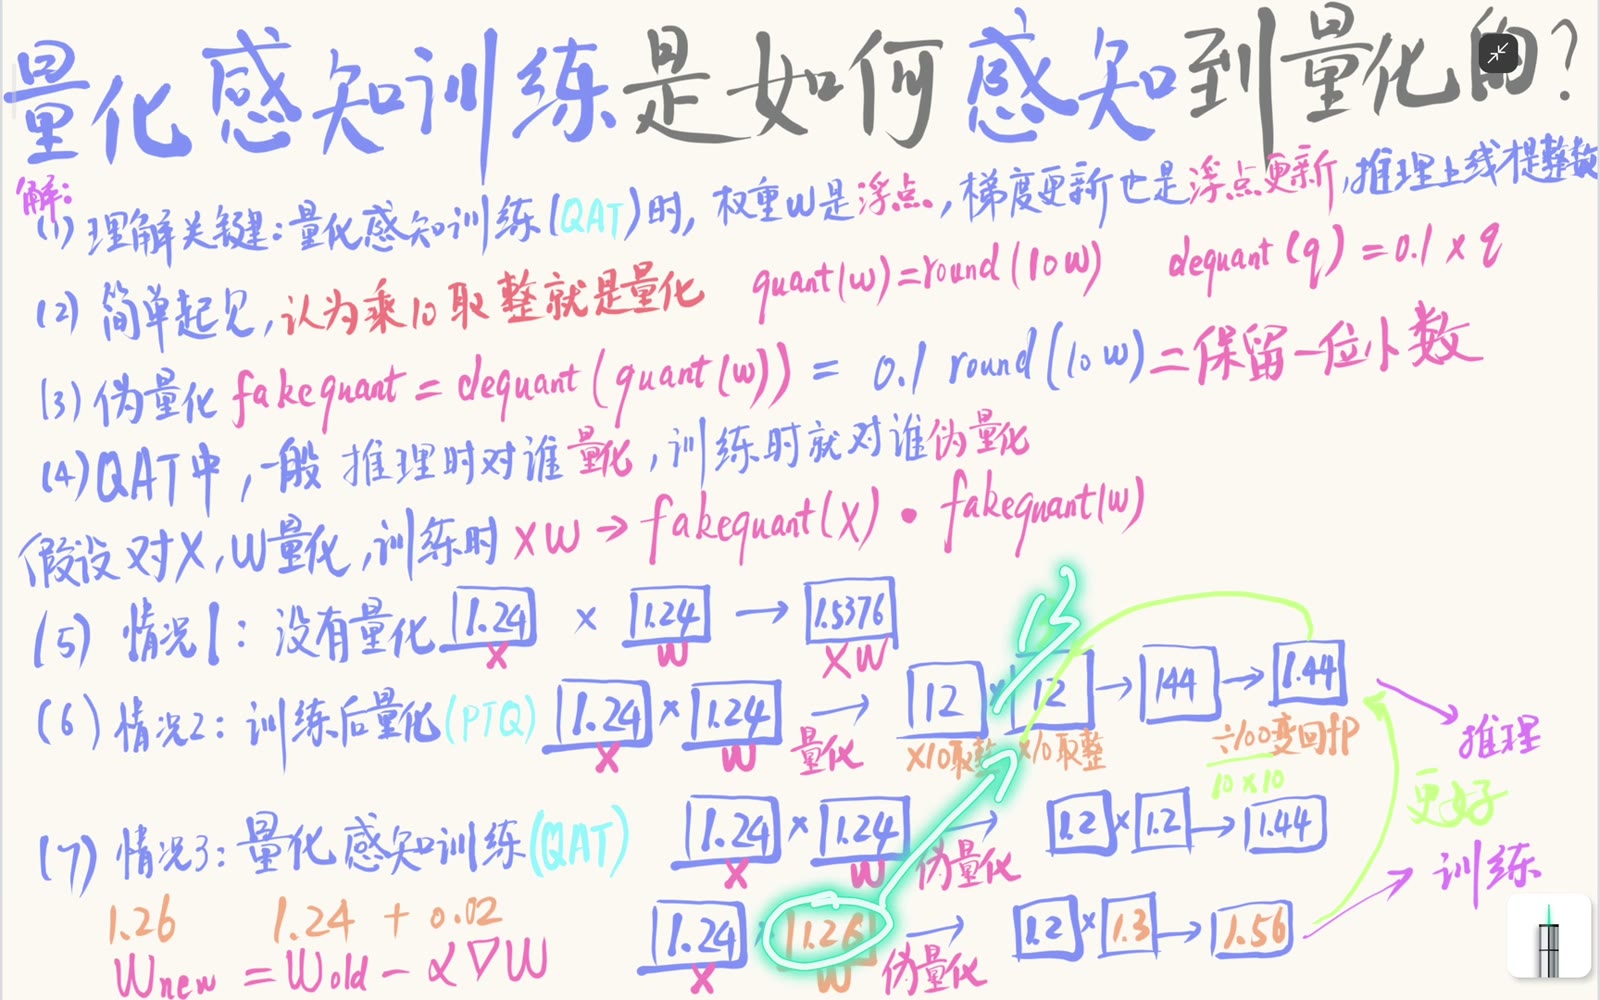 量化感知训练是如何感知到量化的?
解:
(1) 理解关键:量化感知训练(QAT)时,权重W是浮点,梯度更新也是浮点更新,推理上线才是整数
(2) 简单起见,认为乘10取整就是量化 quant(w)=round(10w) dequant(q)=0.1×q
(3) 伪量化 fakequant = dequant(quant(w)) = 0.1 round(10w)=保留一位小数
(4) QAT中,一般推理时对谁量化,训练时就对谁伪量化
假设对X,W量化,训练时 XW → fakequant(X) • fakequant(w)
13
(5) 情况1: 没有量化 1.24 × 1.24 → 1.5376
X W XW
(6) 情况2: 训练后量化(PTQ) 1.24 × 1.24 → 12 × 12 → 144 → 1.44
X W 量化 ×10取整 ×10取整 ÷100变回fP 推理
10×10
更好
(7) 情况3: 量化感知训练(QAT) 1.24 × 1.24 → 1.2 × 1.2 → 1.44
X W 伪量化 训练
1.26 1.24 + 0.02 1.24 × 1.26 → 1.2 × 1.3 → 1.56
Wnew = Wold - α∇W X W 伪量化